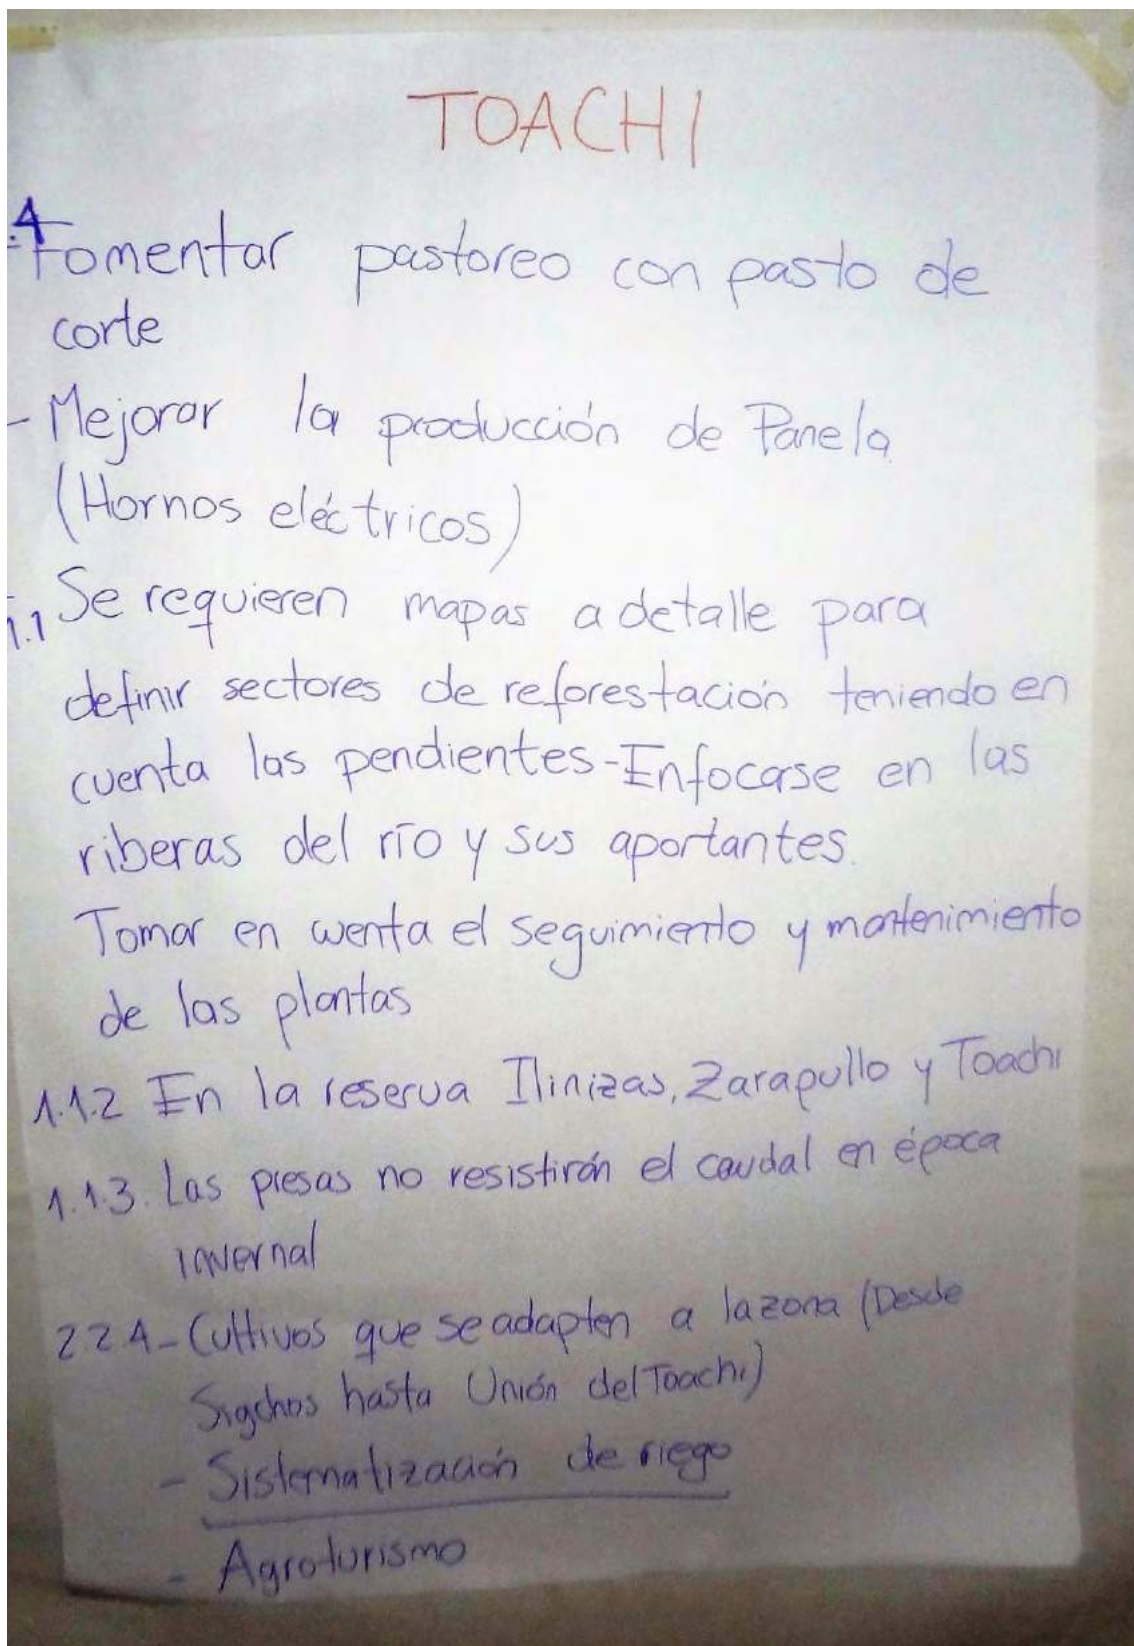 TOACHI
.4
-Fomentar pastoreo con pasto de
corte
- Mejorar la producción de Panela
(Hornos eléctricos)
1.1 Se requieren mapas a detalle para
definir sectores de reforestación teniendo en
cuenta las pendientes-Enfocase en las
riberas del río y sus aportantes.
Tomar en cuenta el seguimiento y mantenimiento
de las plantas
1.1.2 En la reserva Ilinizas, Zarapullo y Toachi
1.1.3. Las presas no resistirán el caudal en época
invernal
2 2 4- Cultivos que se adapten a la zona (Desde
Sigchos hasta Unión del Toachi)
- Sistematización de riego
- Agroturismo